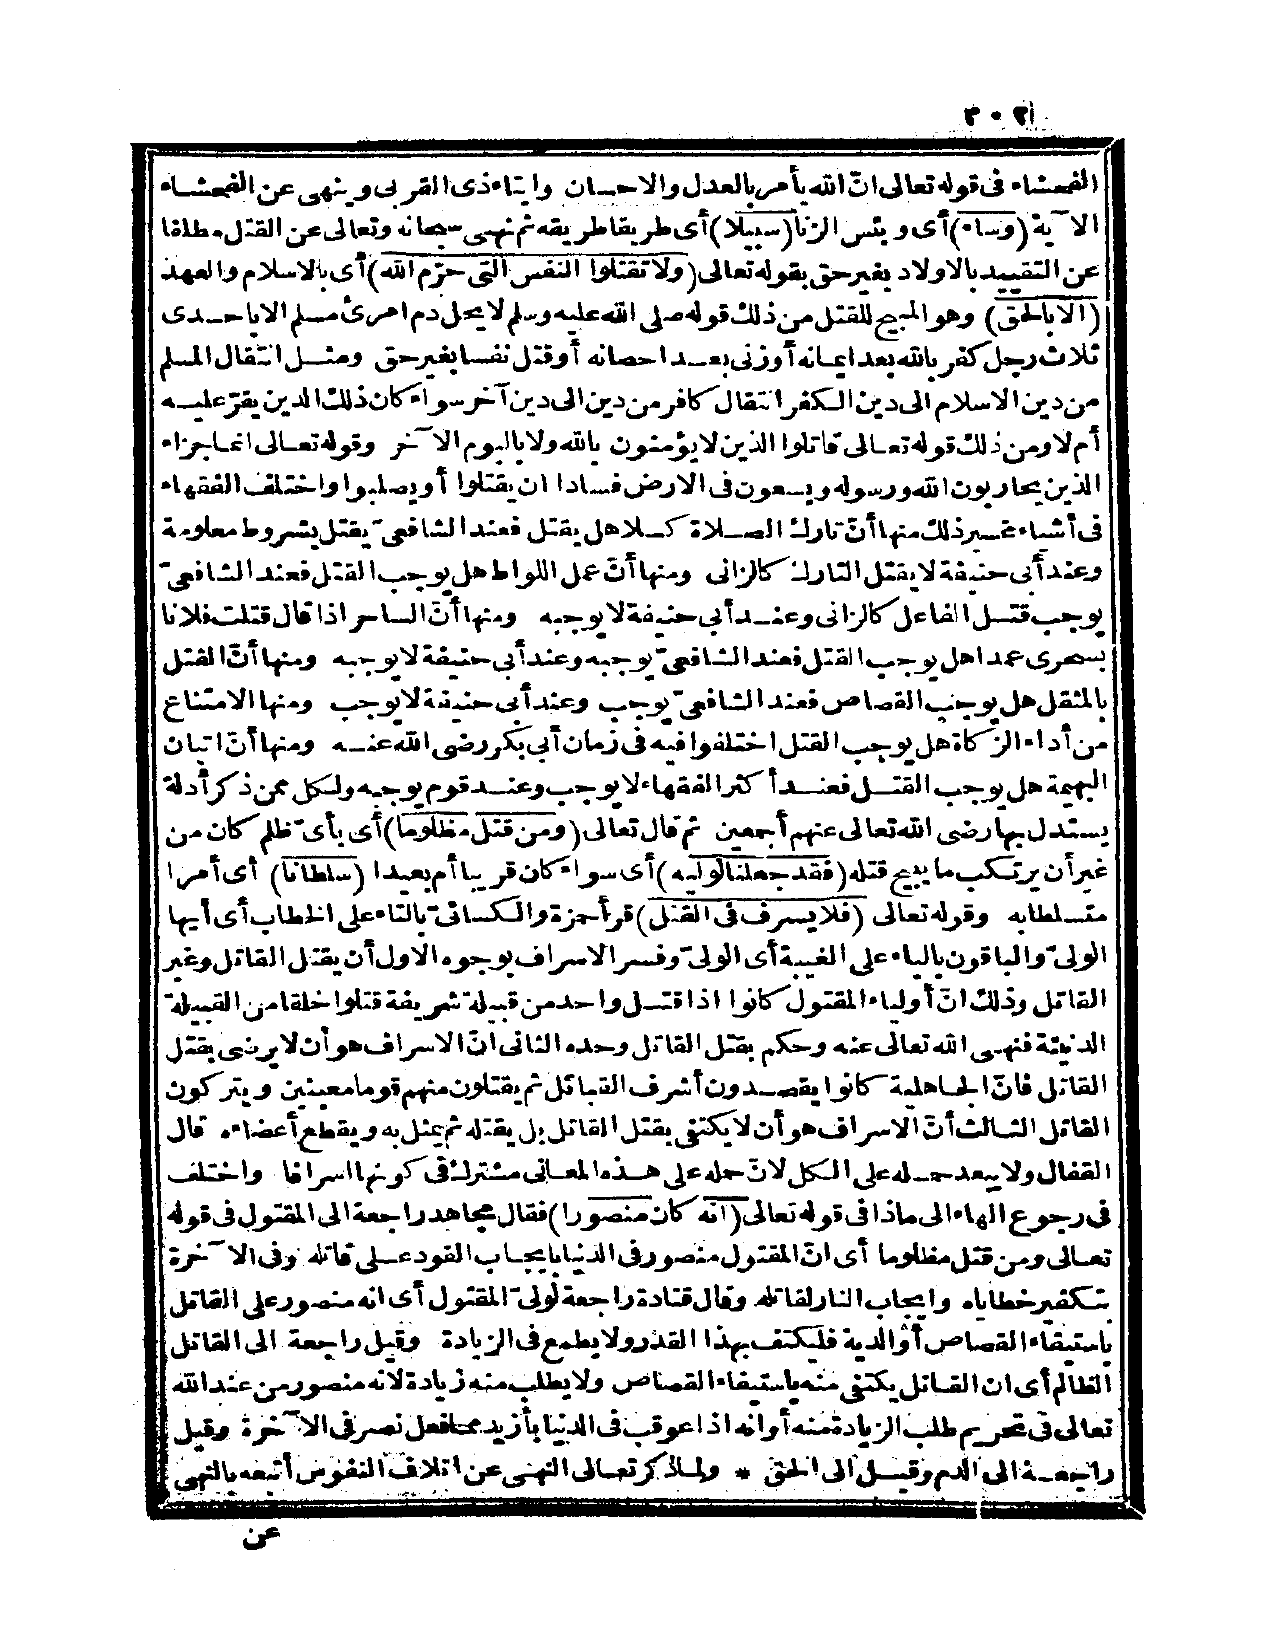 ٣٠٢
الفحشاء فى قوله تعالى انّ الله يأمر بالعدل والاحسان وايتاء ذى القربى وينهى عن الفحشاء
الآية (وساء) أى وبئس الزنا (سبيلا) أى طريقا طريقه ثم نهى سبحانه وتعالى عن القتل مطلقا
عن التقييد بالاولاد بغير حق بقوله تعالى (ولا تقتلوا النفس التى حرّم الله) أى بالاسلام والعهد
(الا بالحق) وهو المبيح للقتل من ذلك قوله صلى الله عليه وسلم لا يحل دم امرئ مسلم الا باحدى
ثلاث رجل كفر بالله بعد ايمانه أو زنى بعد احصانه أو قتل نفسا بغير حق ومثل انتقال المسلم
من دين الاسلام الى دين الكفر انتقال كافر من دين الى دين آخر سواء كان ذلك الدين يقرّ عليه
أم لا ومن ذلك قوله تعالى قاتلوا الذين لا يؤمنون بالله ولا باليوم الآخر وقوله تعالى انما جزاء
الذين يحاربون الله ورسوله ويسعون فى الارض فسادا ان يقتلوا أو يصلبوا واختلف الفقهاء
فى أشياء غير ذلك منها أنّ تارك الصلاة كسلا هل يقتل فعند الشافعىّ يقتل بشروط معلومة
وعند أبى حنيفة لا يقتل التارك كالزانى ومنها أنّ عمل اللواط هل يوجب القتل فعند الشافعىّ
يوجب قتل الفاعل كالزانى وعند أبى حنيفة لا يوجبه ومنها أنّ الساحر اذا قال قتلت فلانا
بسحرى عمدا هل يوجب القتل فعند الشافعىّ يوجبه وعند أبى حنيفة لا يوجبه ومنها أنّ القتل
بالمثقل هل يوجب القصاص فعند الشافعىّ يوجب وعند أبى حنيفة لا يوجب ومنها الامتناع
من أداء الزكاة هل يوجب القتل اختلفوا فيه فى زمان أبى بكر رضى الله عنه ومنها أنّ اتيان
البهيمة هل يوجب القتل فعند أكثر الفقهاء لا يوجب وعند قوم يوجبه ولكل ممن ذكر أدلة
يستدل بها رضى الله تعالى عنهم أجمعين ثم قال تعالى (ومن قتل مظلوما) أى بأىّ ظلم كان من
غير أن يرتكب ما يبيح قتله (فقد جعلنا لوليه) أى سواء كان قريبا أم بعيدا (سلطانا) أى أمرا
متسلطا به وقوله تعالى (فلا يسرف فى القتل) قرأ حمزة والكسائىّ بالتاء على الخطاب أى أيها
الولىّ والباقون بالياء على الغيبة أى الولىّ وفسر الاسراف بوجوه الاول أن يقتل القاتل وغير
القاتل وذلك انّ أولياء المقتول كانوا اذا قتل واحد من قبيلة شريفة قتلوا خلقا من القبيلة
الدنيئة فنهى الله تعالى عنه وحكم بقتل القاتل وحده الثانى انّ الاسراف هو أن لا يرضى بقتل
القاتل فانّ الجاهلية كانوا يقصدون أشرف القبائل ثم يقتلون منهم قوما معينين ويتركون
القاتل الثالث أنّ الاسراف هو أن لا يكتفى بقتل القاتل بل يقتله ثم يمثل به ويقطع أعضاءه قال
القفال ولا يبعد حمله على الكل لانّ جله على هذه المعانى مشترك فى كونها اسرافا واختلف
فى رجوع الهاء الى ماذا فى قوله تعالى (انه كان منصورا) فقال مجاهد راجعة الى المقتول فى قوله
تعالى ومن قتل مظلوما أى انّ المقتول منصور فى الدنيا بايجاب القود على قاتله وفى الآخرة
بتكفير خطاياه وايجاب النار لقاتله وقال قتادة راجعة لولىّ المقتول أى انه منصور على القاتل
باستيفاء القصاص أو الدية فليكتف بهذا القدر ولا يطمع فى الزيادة وقيل راجعة الى القاتل
الظالم أى ان القاتل يكتفى منه باستيفاء القصاص ولا يطلب منه زيادة لانه منصور من عند الله
تعالى فى تحريم طلب الزيادة منه أو انه اذا عوقب فى الدنيا بأزيد مما فعل نصر فى الآخرة وقيل
راجعة الى الدم وقيل الى الحق * ولما ذكر تعالى النهى عن اتلاف النفوس أتبعه بالنهى
عن